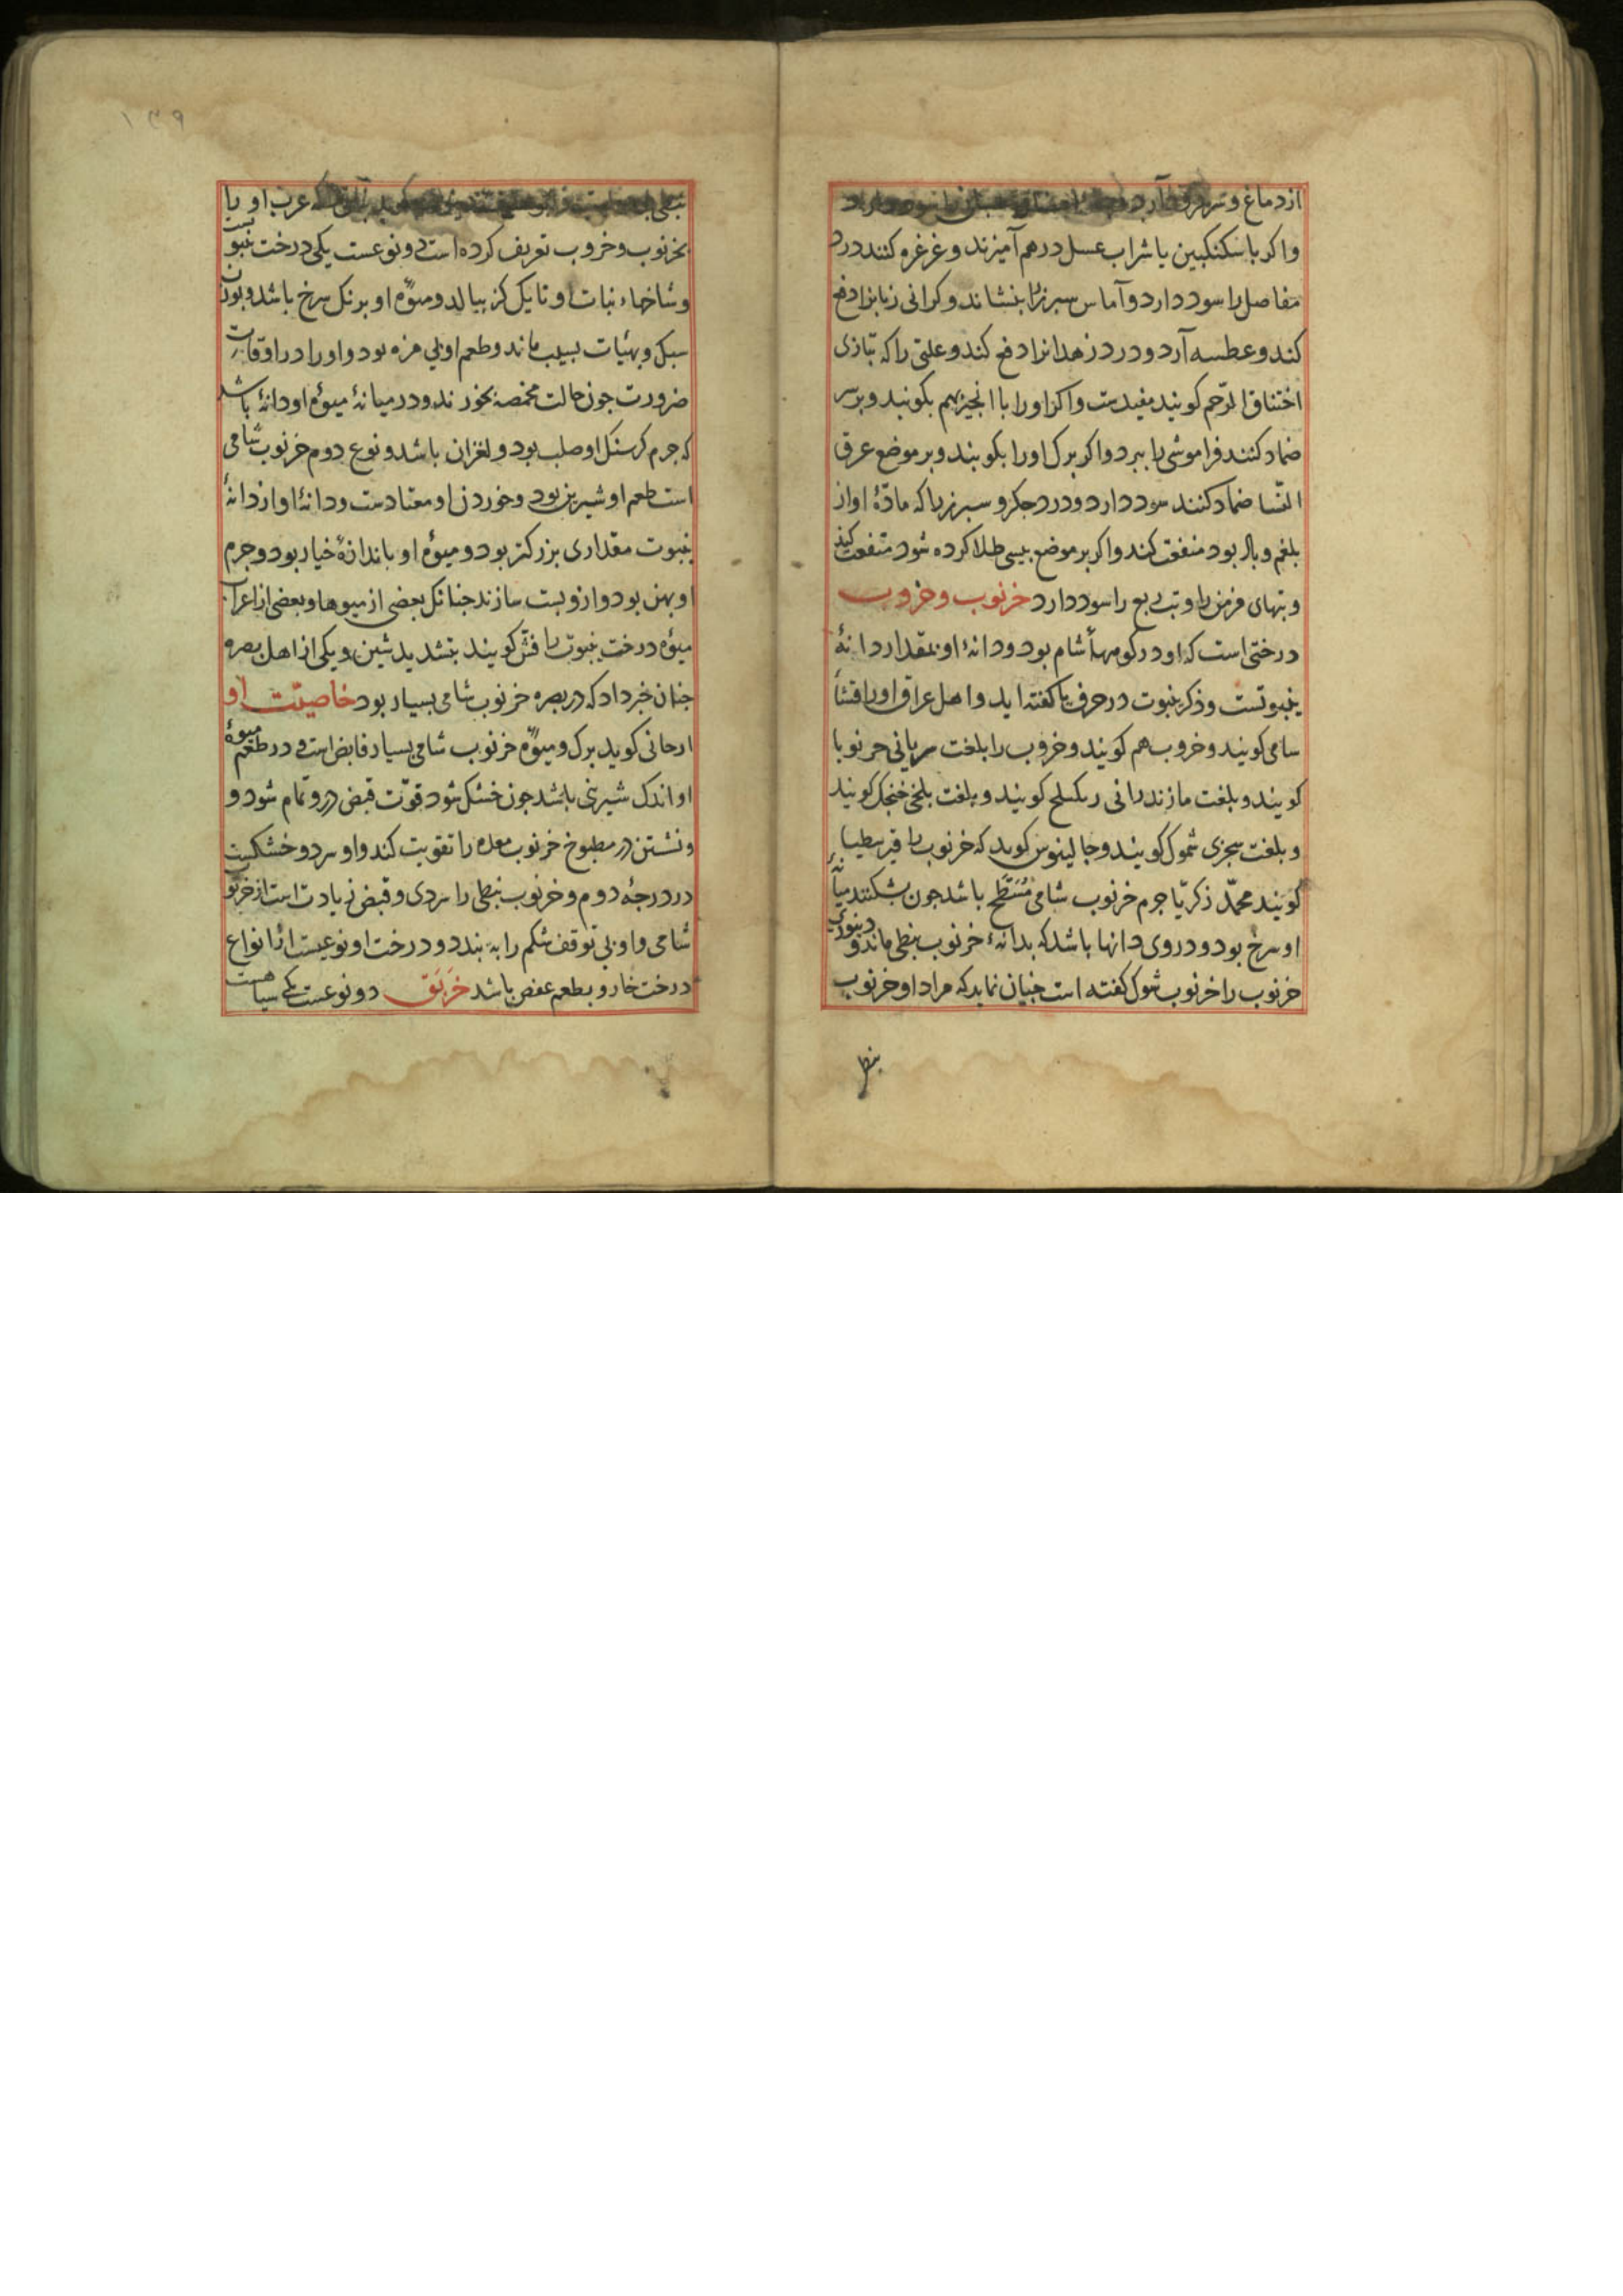 از دماغ و سر فرود آرد
واکر با سکنکبین یا شراب عسل درهم آمیزند و غرغره کنند درد
مفاصل را سود دارد و آماس سبرز را بنشاند و کرانی زبانرا دفع
کند و عطسه آرد و درد زهدانرا دفع کند و علتی را که بتازی
اختناق الرّحم کویند مفیدست واکر اورا با انجیر بهم بکوبند و بر سر
ضماد کنند فراموشی را ببرد واکر برک اورا بکوبند و بر موضع عرق
النّسا ضماد کنند سود دارد و درد جکر و سبرز را که مادّهٔ او از
بلغم و باد بود منفعت کند واکر بر موضع بیسی طلا کرده شود منفعت کند
و تبهای مزمن را و تب ربع را سود دارد خرنوب و خروب
درختی است که او در کوههاٴ شام بود و دانهٔ او بمقدار دانهٔ
ینبوتست و ذکر ینبوت در حرف یا کفته اید و اهل عراق اورا قثثاٴ
شامی کویند و خروب هم کویند و خروب را بلغت سریانی حرنوبا
کویند و بلغت مازندرانی کویند و بلغت بلخی خنجک کویند
و بلغت سجزی شموک کویند و جالینوس کوید که خرنوب را قیرطیا
کویند محمّد زکریّا جرم خرنوب شامی مُسَطَّح باشد جون بشکنند میانهٔ
او سرخ بود و در وی دانها باشد که بدانهٔ خرنوب نبطی ماند و دینوری
خرنوب را خرنوب شوک کفته است جنان نماید که مراد او خرنوب
نبطی
نبطی که عرب او را
بخرنوب و خروب تعریف کرده است دو نوعست یکی درخت ینبوتست
و شاخهاء نبات او تا یک کز ببالد و میوهٔ او برنک سرخ باشد و بوزن
سبک و بهیٔات بسیب ماند و طعم او بی مزه بود و اورا در اوقات
ضرورت جون حالت مخمصه بخورند و در میانهٔ میوهٔ او دانهٔ باشد
که جرم کرسنک او صلب بود و لغزان باشد و نوع دوم خرنوب شامی
است طعم او شیرین بود و خوردن او معتادست و دانهٔ او از دانهٔ
ینبوت مقداری بزرکتر بود و میوهٔ او باندازهٔ خیار بود و جرم
او بهن بود و ازو بست سازند جنانک بعضی از میوها و بعضی از اعراب
میوهٔ درخت ینبوت را فشّ کویند بتشدید شین و یکی از اهل بصره
جنان خبر داد که در بصره خرنوب شامی بسیار بود خاصیّت او
ارجانی کوید برک و میوهٔ خرنوب شامی بسیار قابض است و در طعم میوهٔ
او اندک شیرینی باشد جون خشک شود قوّت قبض درو تمام شود و
و نشستن در مطبوخ خرنوب معده را تقویت کند و او سرد و خشکست
در درجهٔ دوم و خرنوب نبطی را سردی و قبض زیادت است از خرنوب
شامی و او بی توقف شکم را به بندد و درخت او نوعیست از انواع
درخت خار و بطعم عفص باشد خَربَق دو نوعست یکی سیاهست
۱۳۹